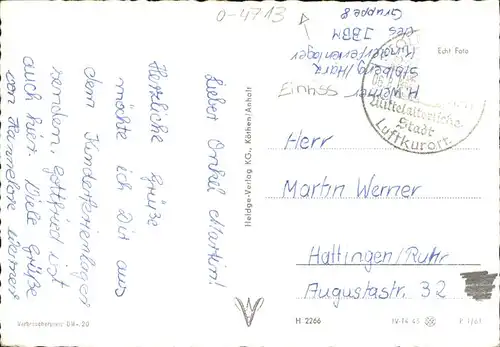 0-4713
Lieber Onkel Martin!
Herzliche Grüße
möchte ich Dir aus
dem Kinderferienlager
senden. Gottfried ist
auch hier. Viele Grüße
von Hannelore Werner
H. Werner
Stolberg/Harz
Kinderferienlager
des IBBM
Gruppe 8
Echt Foto
Mittelalterliche
Stadt
Luftkurort
Herr
Martin Werner
Hattingen/Ruhr
Augustastr. 32
Heldge-Verlag KG., Köthen/Anhalt
Verbraucherpreis: DM -,20
H 2266
IV-14-45